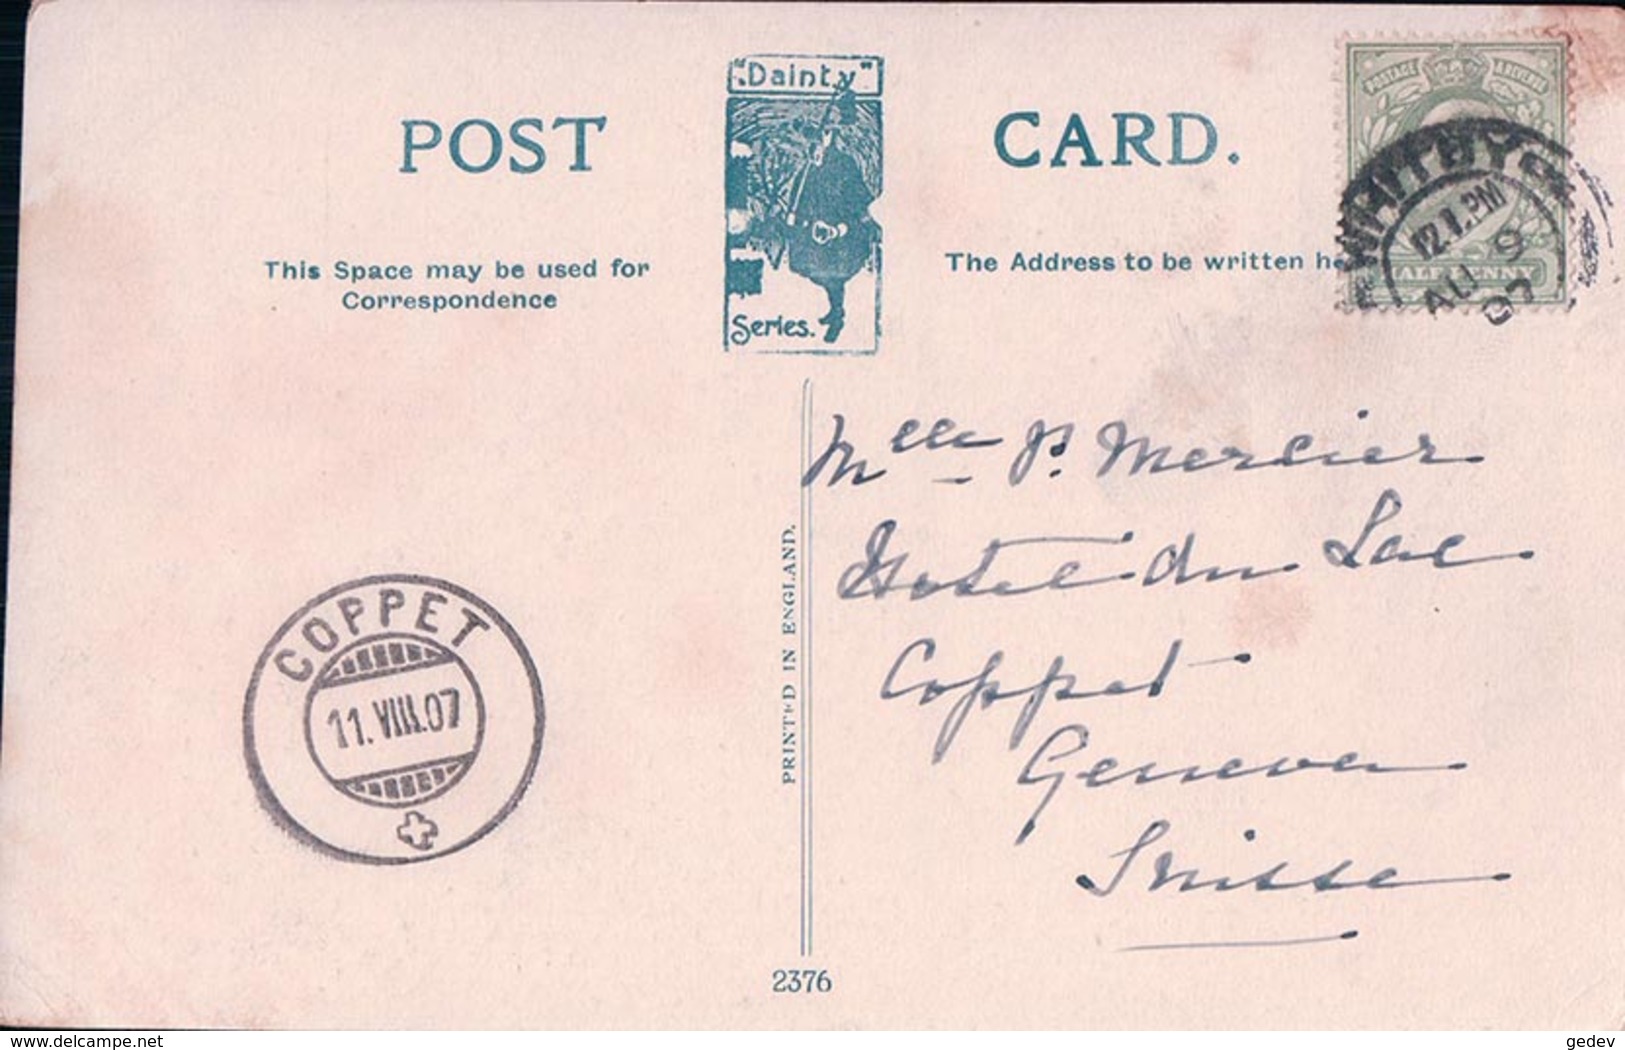 POST
"Dainty"
Series.
CARD.
This Space may be used for
Correspondence
The Address to be written he
POSTAGE & REVENUE
HALFPENNY
WHITBY
12.1.PM
AU 9
07
Mlle P. Mercier
Hotel du Lac
Coppet
Geneva
Suisse
COPPET
11.VIII.07
PRINTED IN ENGLAND.
2376
delcampe.net
gedev